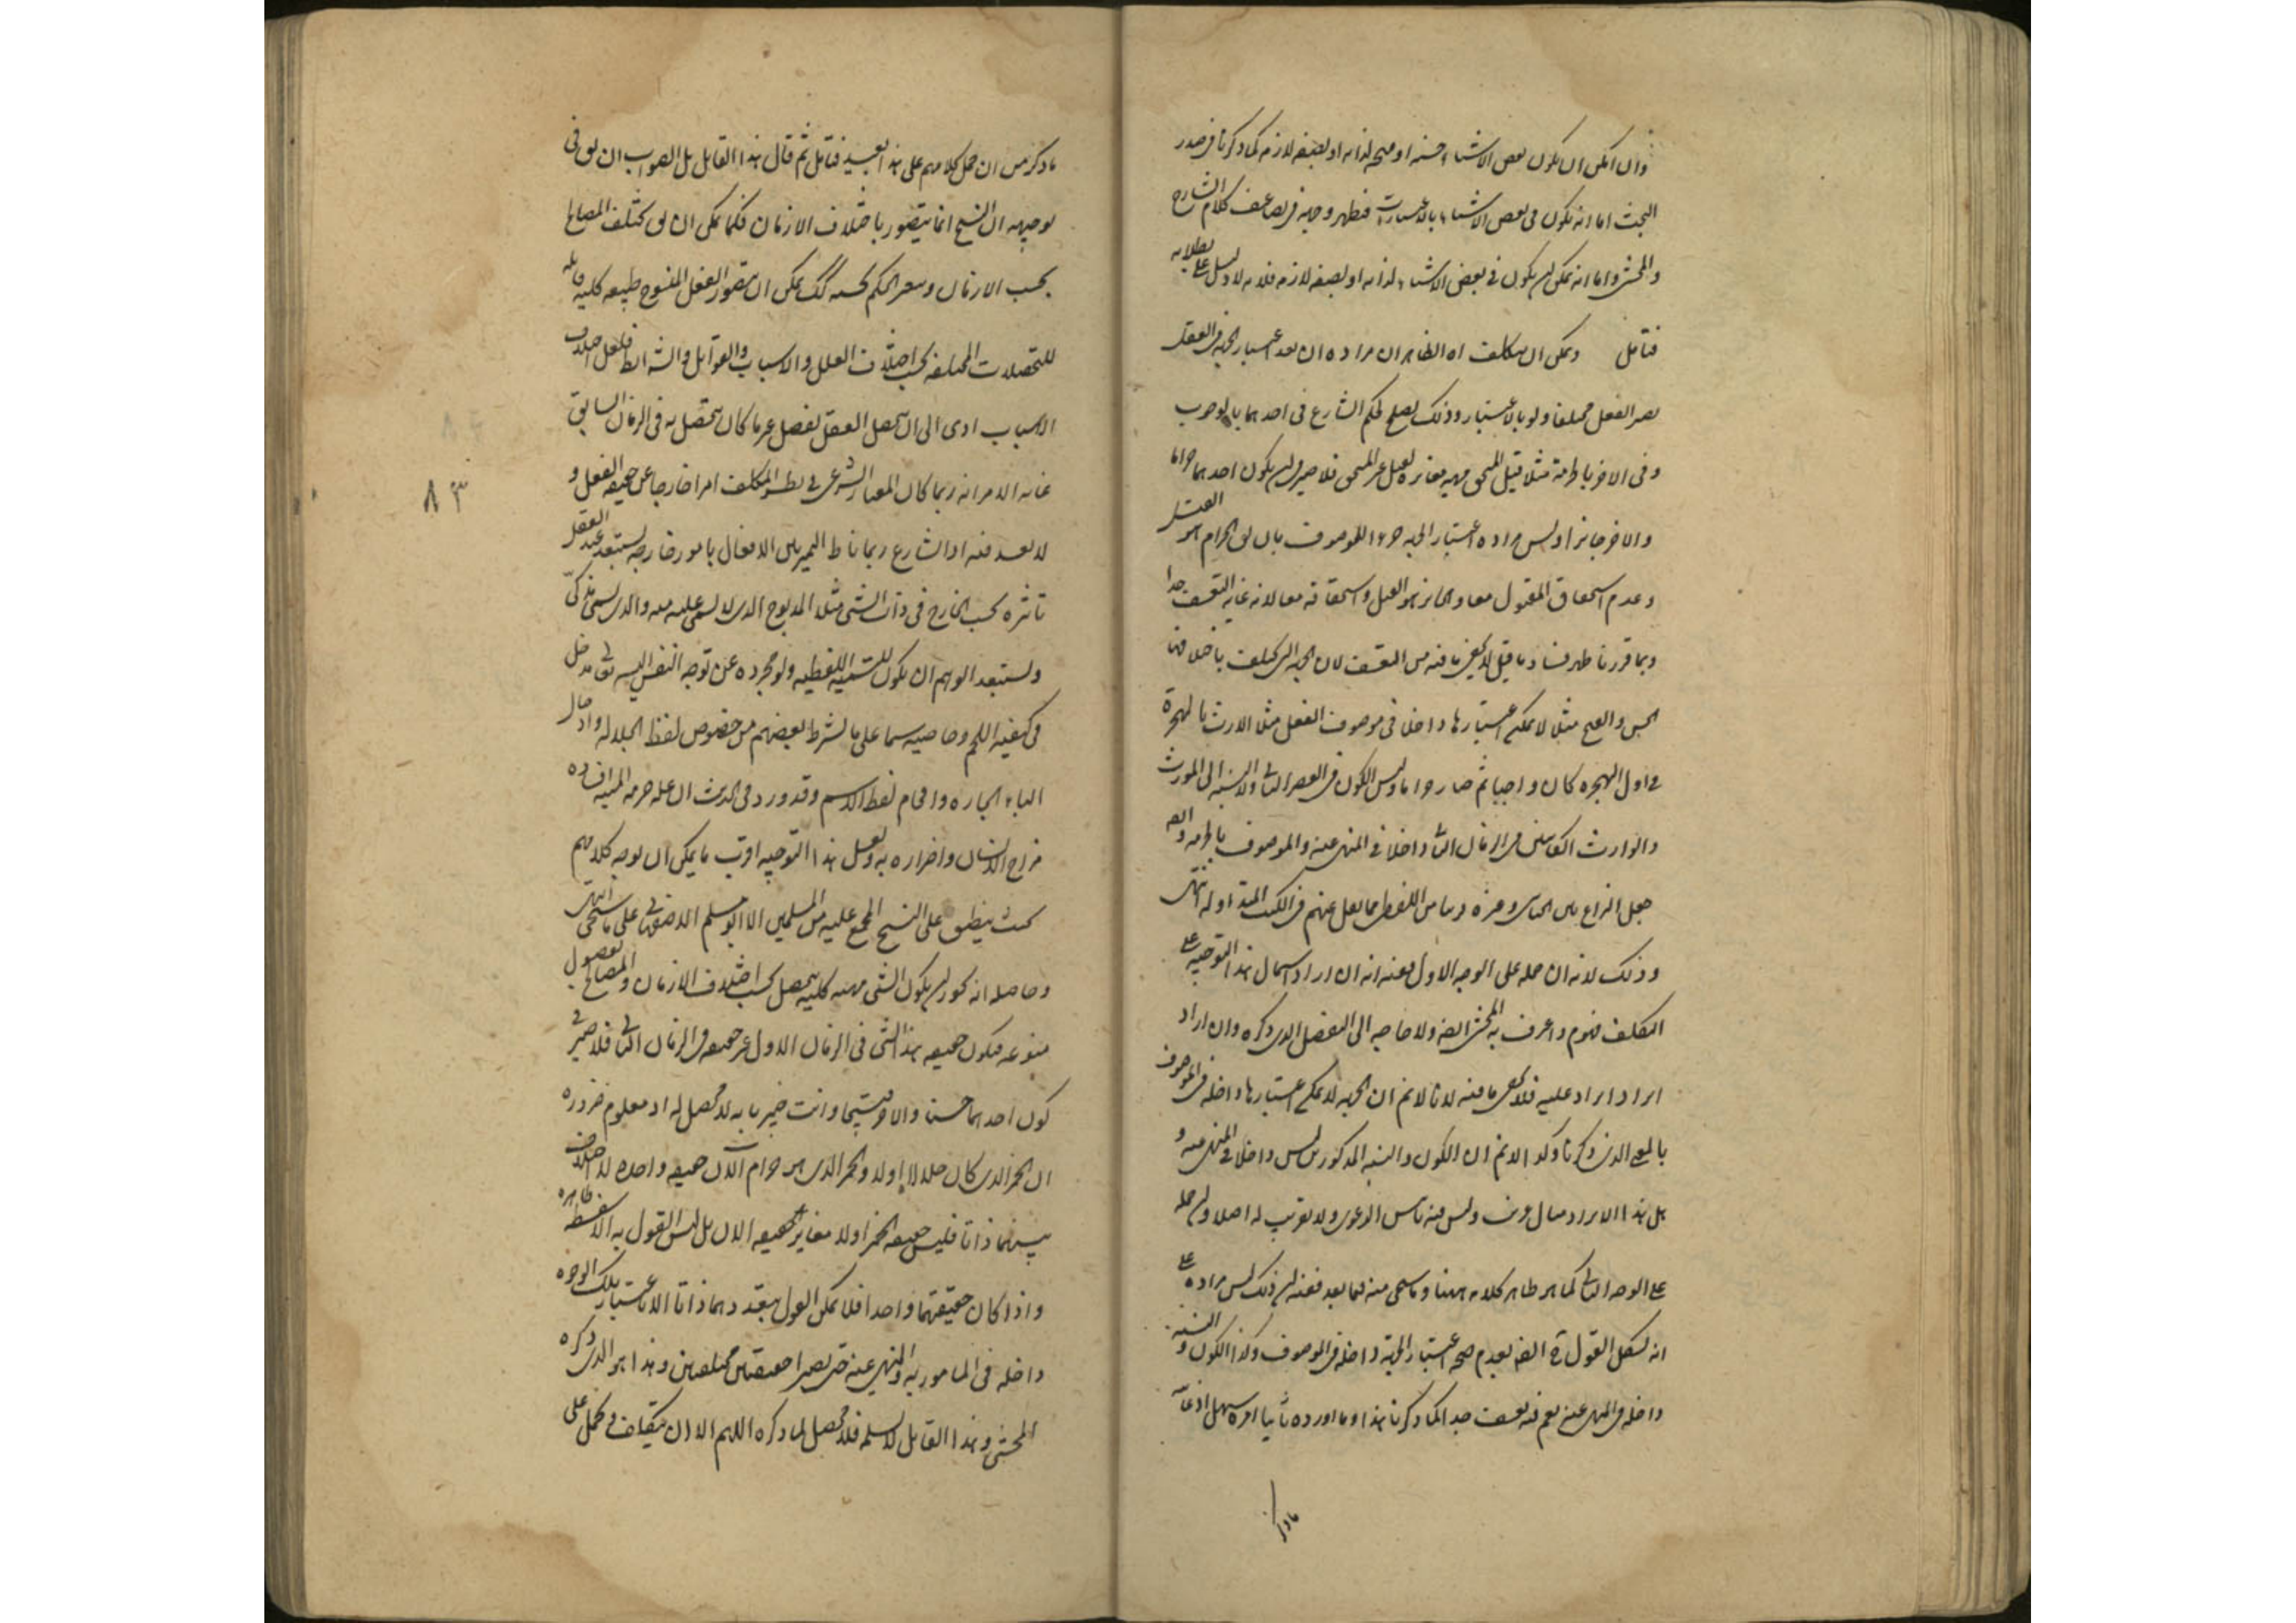 وان امكن ان يكون بعض الاشياء حسنه او قبحه لذاته او لصفة لازمة كما ذكرنا في صدر
البحث اما انه يكون في بعض الاشياء بالاعتبارات فظهر وجهه في تضاعيف كلام الشارح
والمحشي واما انه يمكن ان يكون في بعض الاشياء لذاته او لصفة لازمة فلانه لا دليل على بطلانه
فتامل ويمكن ان الظاهر ان مراده ان بعد اعتبار الجهة في الفعل
يصير الفعل مختلفا ولو بالاعتبار وذلك يصلح لحكم الشارع في احدهما بالوجوب
وفي الاخر بالحرمة مثلا قتل المستحق مهية مغايرة لقتل غير المستحق فلا ضير في ان يكون احدهما حراما
والاخر جائزا وليس مراده اعتبار الجهة جزءا للموصوف بان يق الحرام هو القتل
وعدم استحقاق المقتول معا والجائز هو القتل واستحقاقه معا لانه غاية التعسف جدا
وبما قررنا ظهر فساد ما قيل لا يخفى ما فيه من التعسف لان الجهة التي يختلف باختلافها
الحسن والقبح مثلا لا يمكن اعتبارها داخلا في موصوف الفعل مثلا الارث بالهجرة
في اول الهجرة كان واجبا ثم صار حراما وليس الكون في العصر الثاني ولا النسبة الى المورث
والوارث الكائنين في الزمان الثاني داخلا في المنهي عنه والموصوف بالحرمة والا
جعل النزاع بين الجبائي وغيره قريبا من اللفظي مما نقل عنهم في الكتب المتداولة انتهى
وذلك لانه ان حمله على الوجه الاول ففيه انه ان اراد اشتمال هذا التوجيه على
التكلف فهو م واعرف به المحشي ايضا ولا حاجة الى التفصيل الذي ذكره وان اراد
ايراد ايراد عليه فلا يخفى ما فيه لانا لا نم ان الجهة لا يمكن اعتبارها داخلة في الموصوف
بالمعنى الذي ذكرنا وكذا لا نم ان الكون والنسبة المذكورين ليس داخلا في المنهي عنه و
بل هذا الايراد وليس فيه الدعوى ولا تقريب له اصلا وان حمله
على الوجه الثاني كما هو ظاهر كلامه ههنا وما سيجئ منه فيما بعد ففيه ان ذلك ليس مراده على
انه يشكل القول ح ايضا بعدم صحة اعتبار الجهة داخلة في الموصوف وكذا الكون والنسبة
داخلة في المنهي عنه نعم فيه تعسف جدا كما ذكرنا هذا وما اورده ثانيا امره سهل اذ غاية
ما ذكر
ما ذكر من ان حمل كلامهم على هذا بعيد فتامل ثم قال هذا القائل بل الصواب ان يق في
توجيهه ان النسخ انما يتصور باختلاف الازمان فكما يمكن ان يق يختلف المصالح
بحسب الازمان ويتغير الحكم بحسبه كك يمكن ان يتصور الفعل المنسوخ طبيعة كلية قابلة
للتحصلات المختلفة بحسب اختلاف العلل والاسباب والقوابل والشرائط فلعل اختلاف
الاسباب ادى الى ان تحصل الفعل بفصل غير ما كان يتحصل به في الزمان السابق
غاية الامر انه ربما كان المعيار الشرعي في نظر المكلف امرا خارجا عن حقيقة الفعل و
لا بعد فيه اذ الشارع ربما ناط التميز بين الافعال بامور خارجة يستبعد عند العقل
تاثره بحسب الخارج في ذات الشئ مثلا المذبوح الذي لا يسمى عليه ميتة والذي يسمى مذكى
ويستبعد الوهم ان يكون للتسمية اللفظية ولو مجردة عن توجه النفس اليه تعالى مدخل
في كيفية اللحم وخاصيته سيما على ما يشترط بعضهم من خصوص لفظ الجلالة وادخال
الباء الجارة واقحام لفظ الاسم وقد ورد في الحديث ان علة حرمة الميتة افساده
مزاج الانسان واضراره به ولعل هذا التوجيه اقرب ما يمكن ان يوجه كلامهم
بحيث ينطبق على النسخ المجمع عليه من المسلمين الا ابو مسلم الاصفهاني على ما سيجئ انتهى
وحاصله انه يجوز ان يكون الشئ مهية كلية يتحصل بحسب اختلاف الازمان والمصالح بفصول
منوعة فيكون حقيقة هذا الشئ في الزمان الاول غير حقيقته في الزمان الثاني فلا ضير في
كون احدهما حسنا والاخر قبيحا وانت خبير بانه لا محصل له اذ معلوم ضرورة
ان الخمر الذي كان حلالا اولا والخمر الذي هو حرام الان حقيقة واحدة لا اختلاف
بينهما ذاتا فليس حقيقة الخمر اولا مغايرة لحقيقته الان بل ليس القول به الا سفسطة ظاهرة
واذا كان حقيقتهما واحدا فلا يمكن القول بتعددهما ذاتا الا باعتبار تلك الوجوه
داخلة في المامور به والمنهي عنه حتى يصيرا حقيقتين مختلفتين وهذا هو الذي ذكره
المحشي وهذا القائل لا يسلمه فلا محصل لما ذكره اللهم الا ان يتكلف في حمل على
٨٣